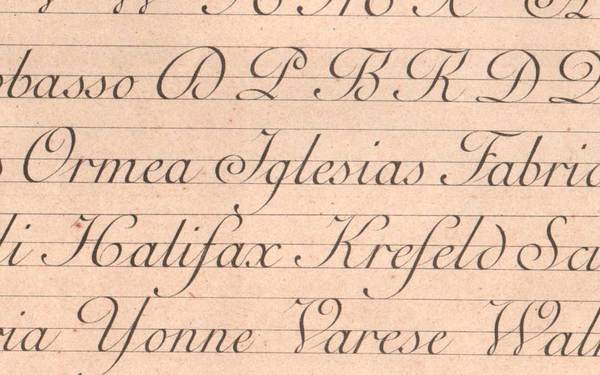 obasso D P B R D D
Ormea Iglesias Fabric
li Halifax Krefeld Sa
ria Yonne Varese Wal